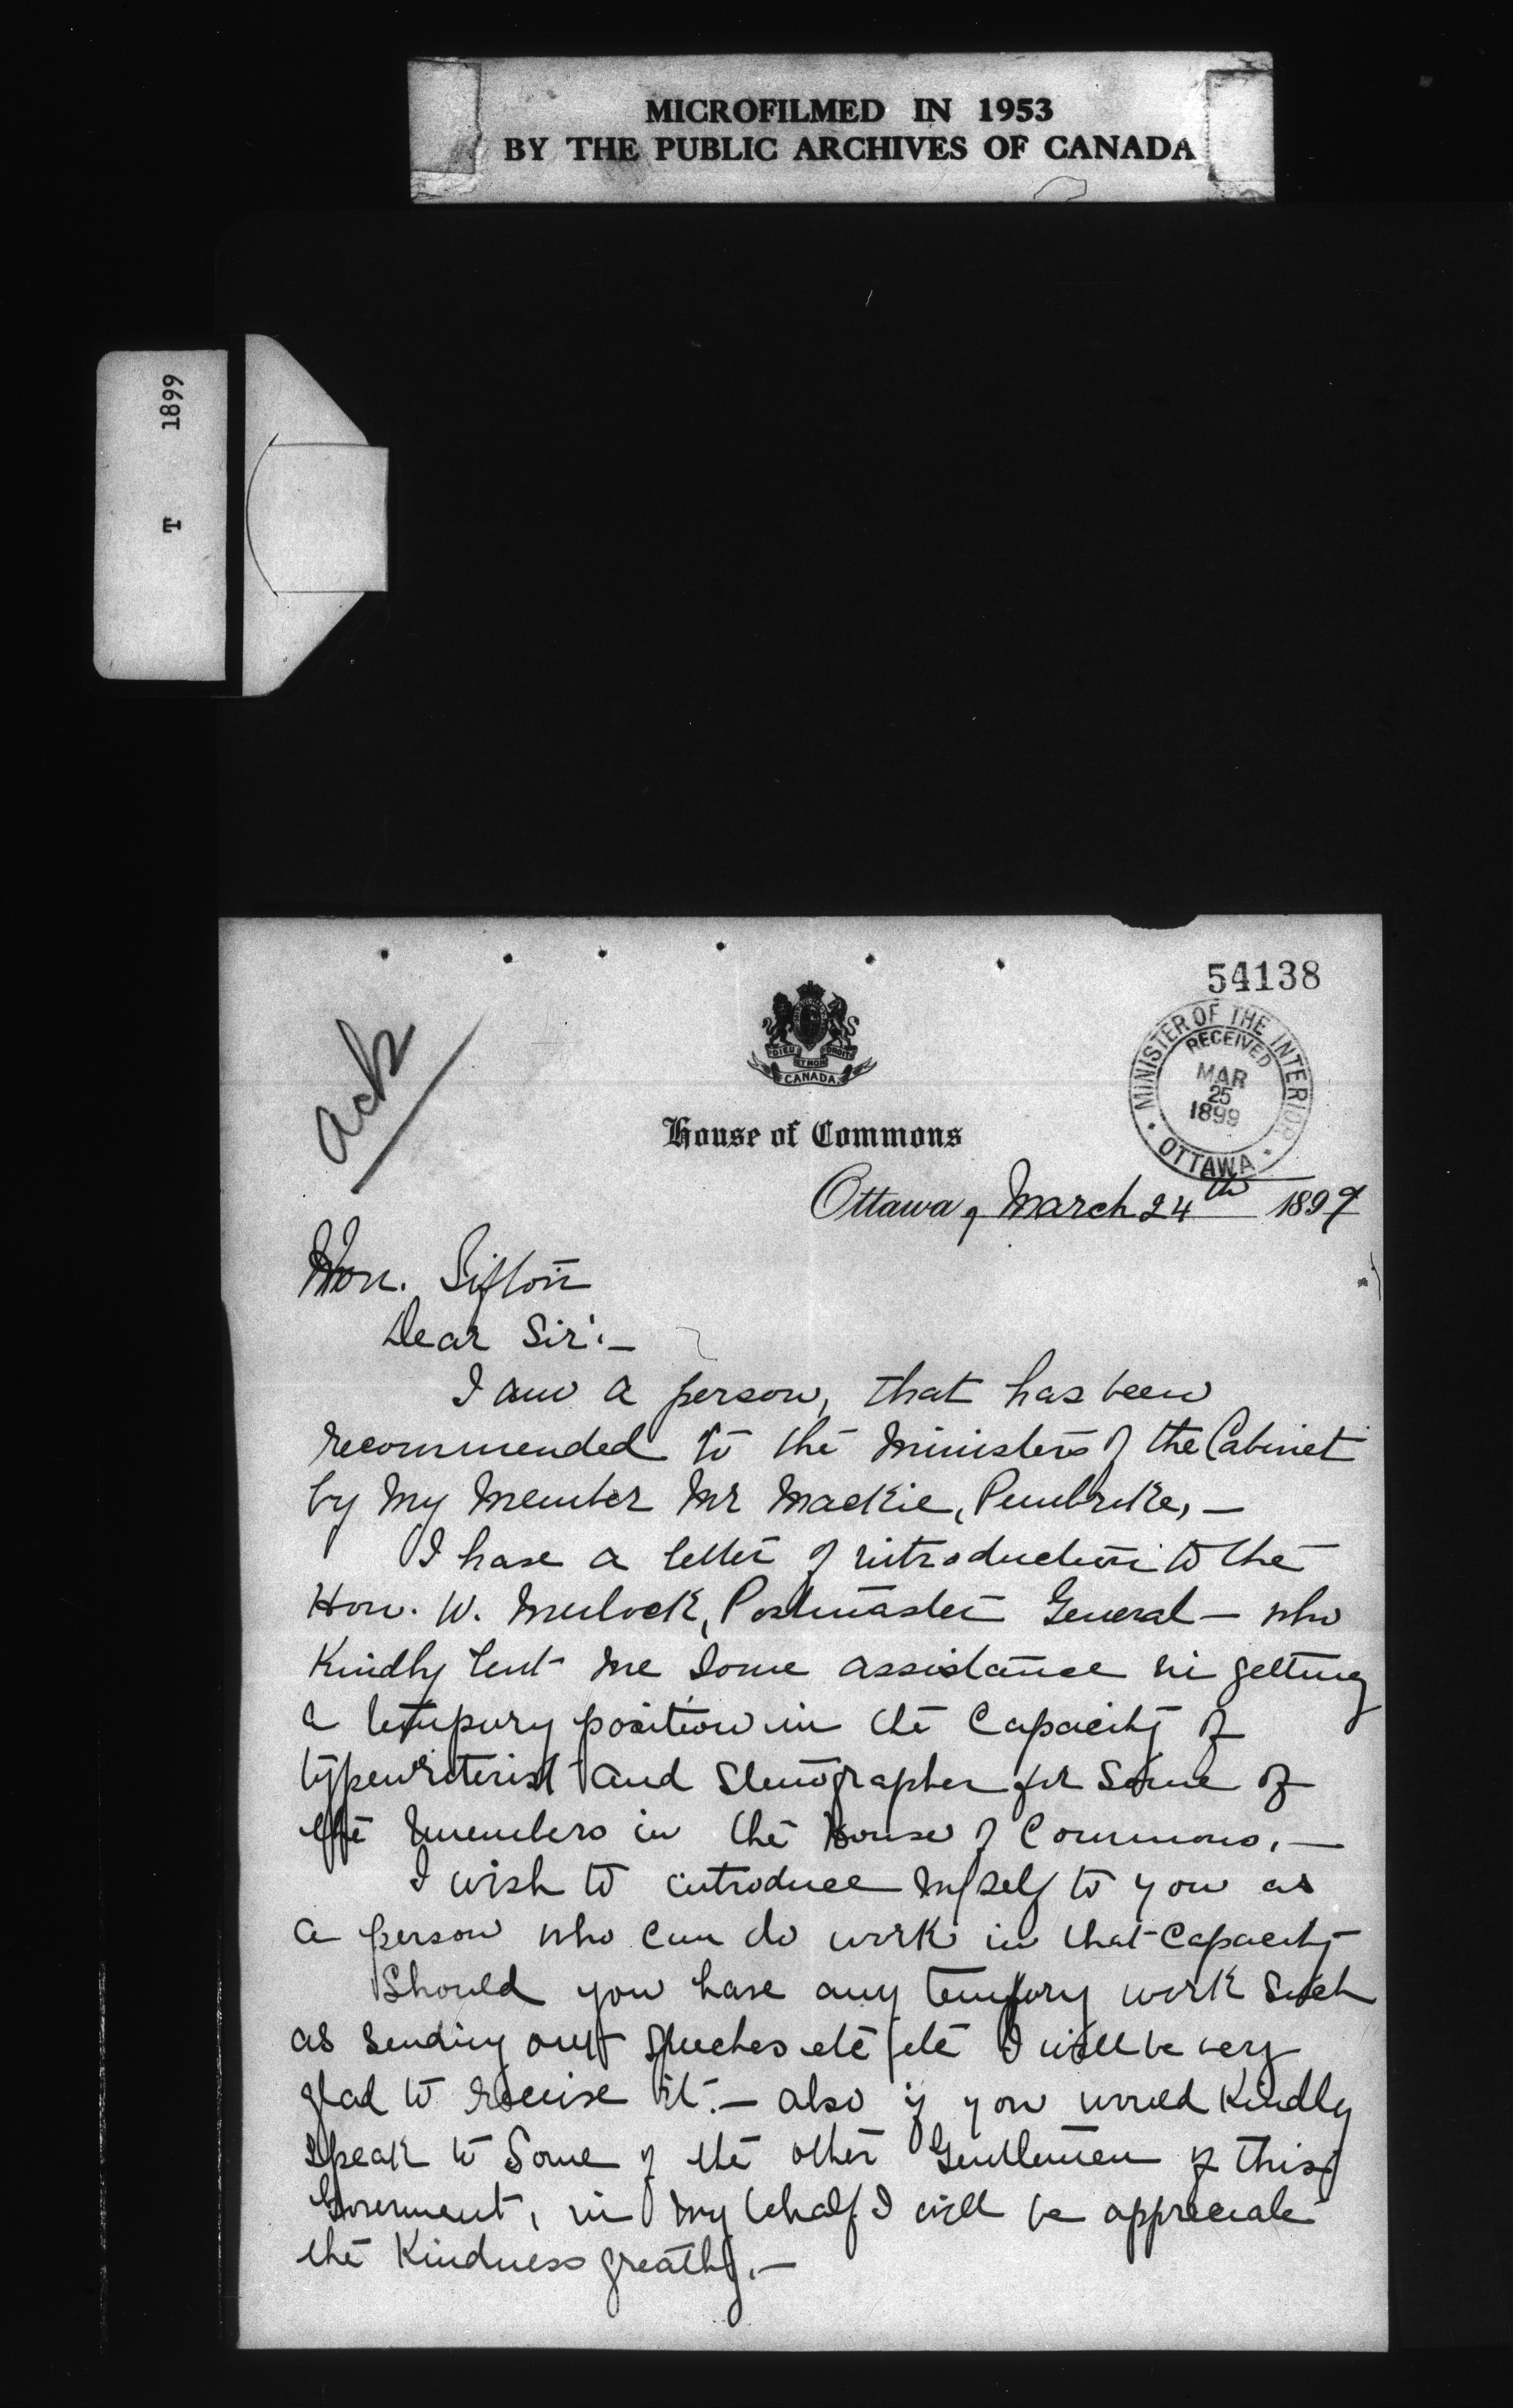 MICROFILMED IN 1953
BY THE PUBLIC ARCHIVES OF CANADA
T 1899
54138
ack
MINISTER OF THE INTERIOR
RECEIVED
MAR
25
1899
OTTAWA
DIEU ET MON DROIT
CANADA
House of Commons
Ottawa, March 24th 1899
Hon. Sifton
Dear Sir:—
I am a person, that has been
recommended to the Ministers of the Cabinet
by my Member Mr Mackie, Pembroke,—
I have a letter of introduction to the
Hon. W. Mulock, Postmaster General — who
Kindly lent me some assistance in getting
a tempury position in the Capacity of
typewriterist and Stenographer for Some of
the Members in the House of Commons.—
I wish to introduce myself to you as
a person who can do work in that Capacity
Should you have any tempory work such
as sending out speeches etc etc I will be very
glad to receive it.— also if you would Kindly
speak to Some of the other Gentlemen of this
Goverment, in my behalf I will be appreciate
the Kindness greatly.—